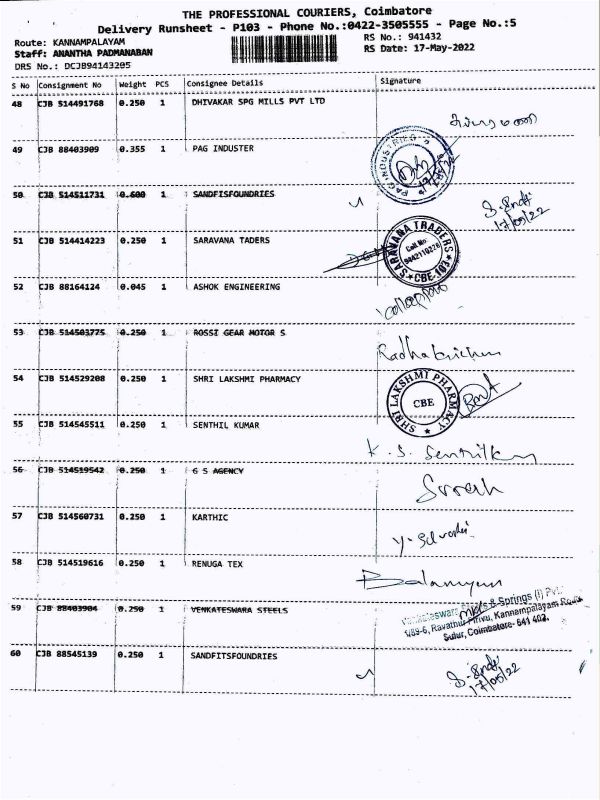 THE PROFESSIONAL COURIERS, Coimbatore
Delivery Runsheet - P103 - Phone No.:0422-3505555 - Page No.:5
Route: KANNAMPALAYAM
RS No.: 941432
Staff: ANANTHA PADMANABAN
RS Date: 17-May-2022
DRS No.: DCJB94143205
S No Consignment No Weight PCS Consignee Details Signature
48 CJB 514491768 0.250 1 DHIVAKAR SPG MILLS PVT LTD
49 CJB 88403909 0.355 1 PAG INDUSTER
PAG INDUSTRIES
50 CJB 514511731 0.600 1 SANDFISFOUNDRIES
17/05/22
51 CJB 514414223 0.250 1 SARAVANA TADERS
SARAVANA TRADERS
Cell.No:
CBE-103
52 CJB 88164124 0.045 1 ASHOK ENGINEERING
53 CJB 514503775 0.250 1 ROSSI GEAR MOTOR S
Radhakrishnan
54 CJB 514529208 0.250 1 SHRI LAKSHMI PHARMACY
SHRI LAKSHMI PHARMACY
CBE
55 CJB 514545511 0.250 1 SENTHIL KUMAR
K. S. Senthilkumar
56 CJB 514519542 0.250 1 G S AGENCY
Suresh
57 CJB 514560731 0.250 1 KARTHIC
58 CJB 514519616 0.250 1 RENUGA TEX
59 CJB 88403904 0.250 1 VENKATESWARA STEELS
& Springs (I) Pvt.
1/89-6, Ravathur Pirivu, Kannampalayam Road,
Sulur, Coimbatore- 641 402.
60 CJB 88545139 0.250 1 SANDFITSFOUNDRIES
17/05/22